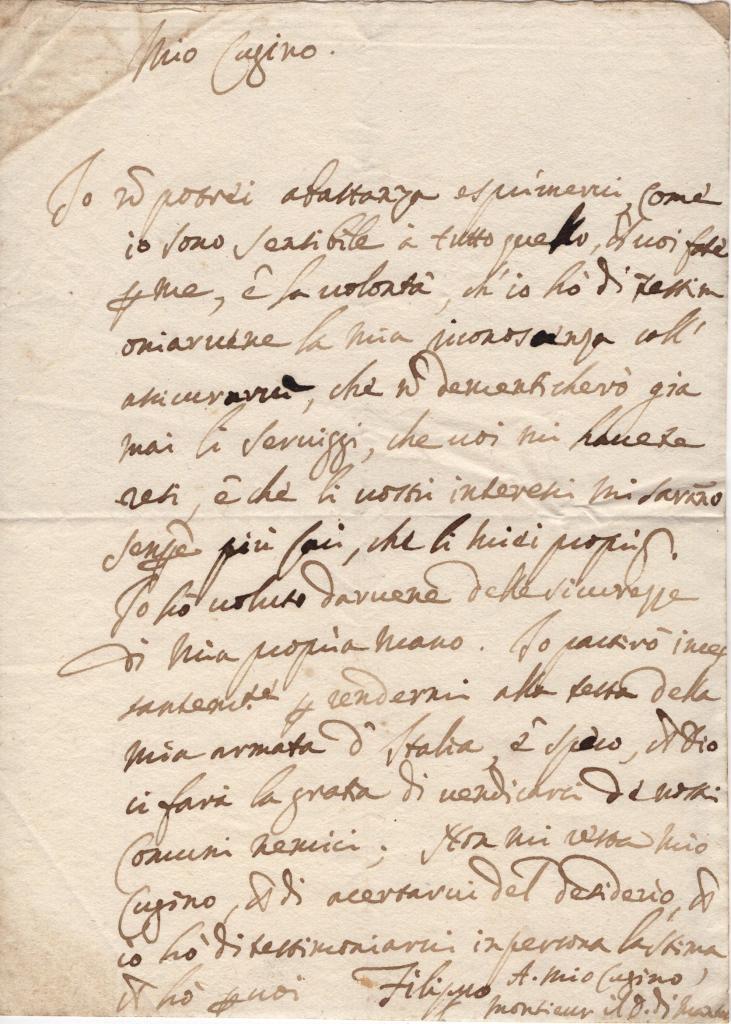 Mio Cugino.
Io nõ potrei abastanza esprimervi, come
io sono sensibile à tutto quello, ch voi fate
p me, è la volontà, ch' io hò di testim
oniarvene la mia riconoscenza coll'
asicurarvi, che nõ dementicherò gia
mai li servigi, che voi mi havete
resi, è che li vostri interessi mi sarãno
sempe più cari, che li miei propij.
Io hò voluto darvene delle sicurezze
di mia propria mano. Io partirò inces
santemte p rendermi alla testa della
mia armata d' Italia, è spero, ch Dio
ci farà la gratia di vendicarci de nostri
Comuni nemici; Non mi resta mio
Cugino, ch di acertarvi del desiderio, ch
io hò di testimoniarvi in persona la stima
ch hò p voi Filippo A. mio Cugino
monsieur il D. di